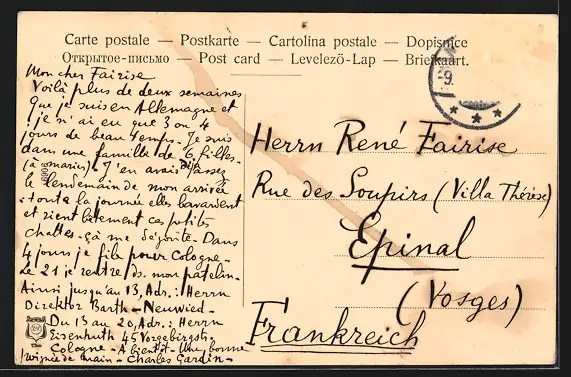 Carte postale — Postkarte — Cartolina postale — Dopisnice
Открытое-письмо — Post card — Levelező-Lap — Briefkaart.
Mon cher Fairise
Voilà plus de deux semaines
que je suis en Allemagne et
je n'ai eu que 3 ou 4
jours de beau temps. Je suis
dans une famille de 6 filles-
(à marier)- J'en avais déjà assez
le lendemain de mon arrivée
: toute la journée elles bavardent
et rient bêtement ces petites
chattes - ça me dégoûte - Dans
4 jours je file pour Cologne -
Le 21 je rentre ds. mon patelin -
Ainsi jusqu'au 13, Adr.: Herrn
Direktor Barth - Neuwied -
Du 13 au 20, Adr: Herrn
Eisenhuth 45 Vorgebirgstr.
Cologne - A bientôt - Une bonne
poignée de main - Charles Gardin -
9.
Herrn René Fairise
Rue des Soupirs (Villa Thérèse)
Epinal
(Vosges)
Frankreich